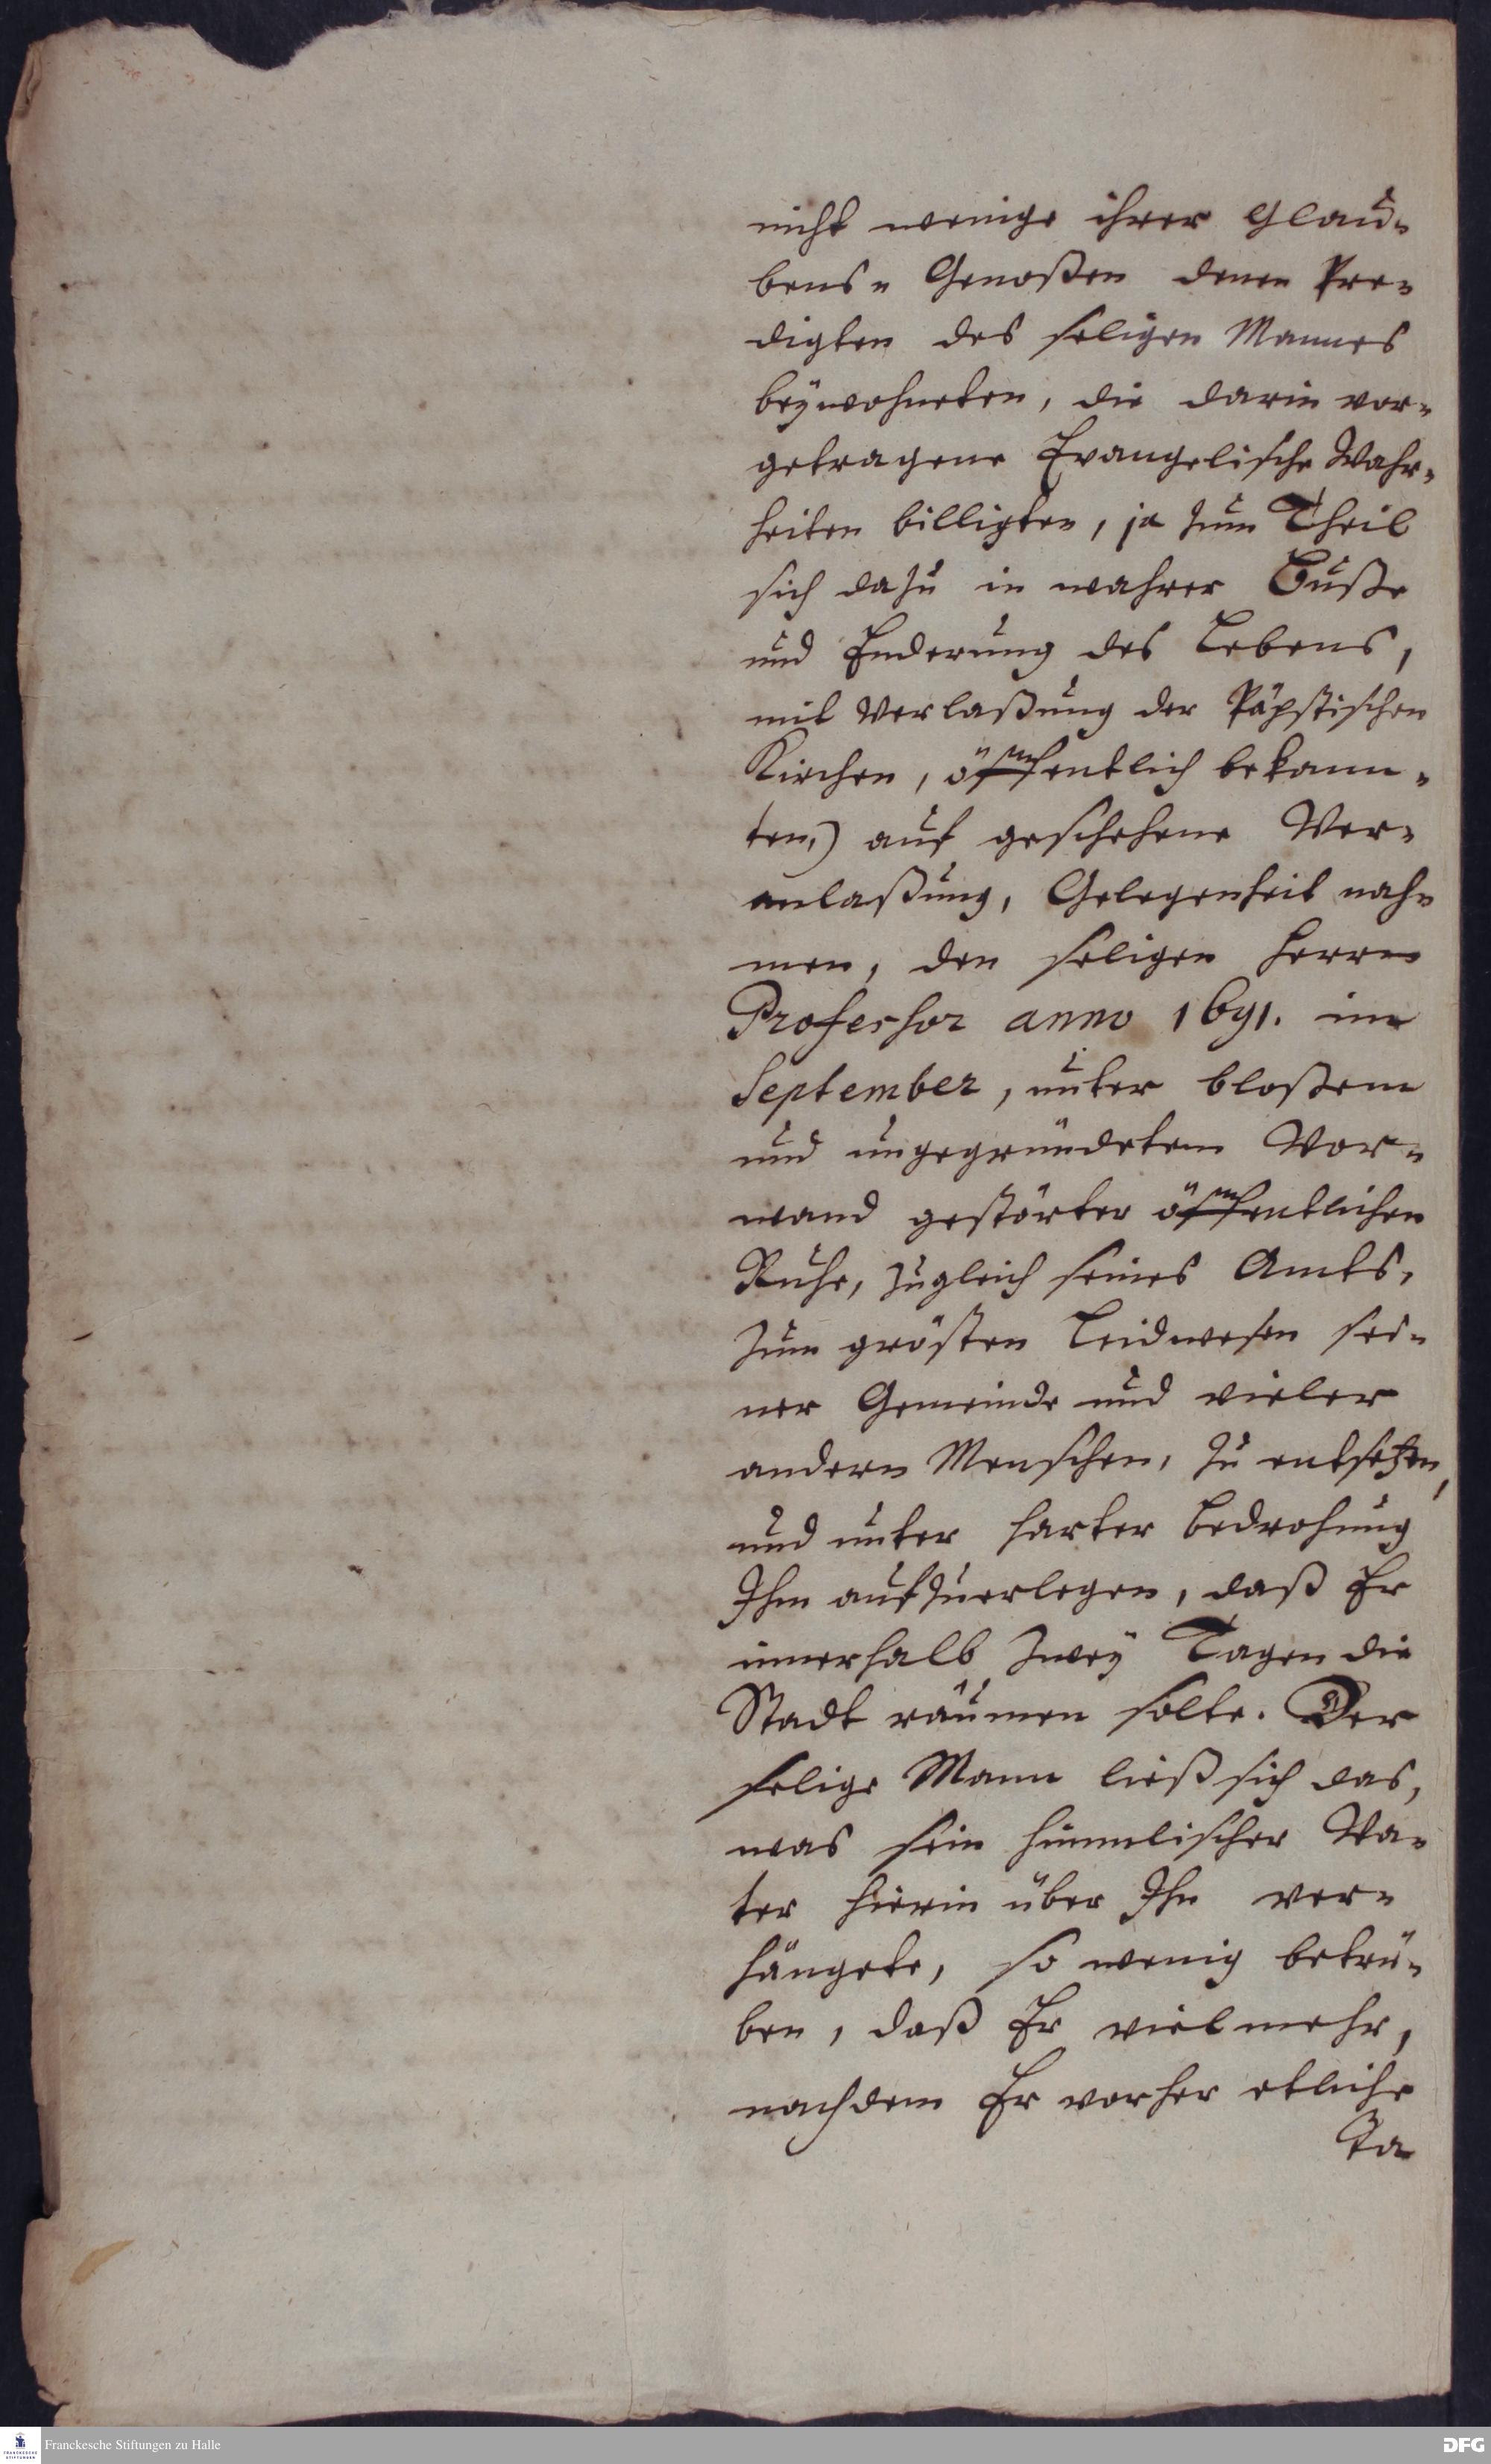 nicht wenige ihrer Glau-
bens- Genoßen denen Pre-
digten des seligen Mannes
beÿwohneten, die darin vor-
getragene Evangelische Wahr-
heiten billigten, ja zum Theil
sich dazu in wahrer Buße
und Enderung des Lebens,
mit Verlaßung der Päpstischen
Kirchen, öffentlich bekann-
ten,) auf geschehene Ver-
anlaßung, Gelegenheit nah-
men, den seligen Herrn
Professor anno 1691. im
September, unter bloßem
und ungegründetem Vor-
wand gestörter öffentlichen
Ruhe, zugleich seines Amts,
zum grösten Leidwesen sei-
ner Gemeinde und vieler
andern Menschen, zu entsetzen,
und unter harter Bedrohung
Ihm aufzuerlegen, daß Er
innerhalb zweÿ Tagen die
Stadt räumen solte. Der
selige Mann ließ sich das,
was sein himmlischer Va-
ter hierin über Ihn ver-
hängete, so wenig betrü-
ben, daß Er vielmehr,
nachdem Er vorher etliche
Ta
Franckesche Stiftungen zu Halle
DFG